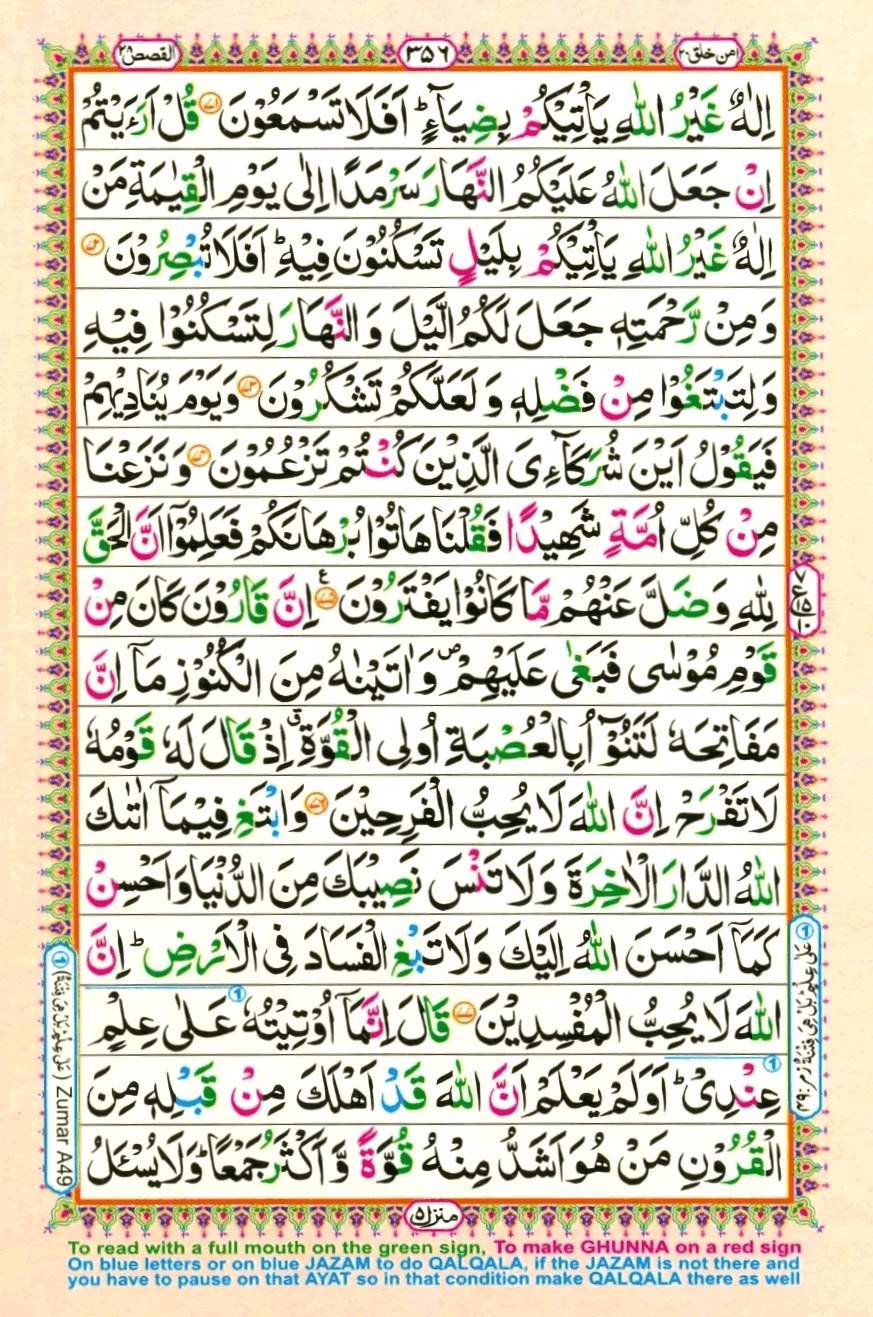 امن خلق ۲۰
۳۵۶
القصص ۲۸
اِلٰهٌ غَيْرُ اللّٰهِ يَاْتِيْكُمْ بِضِيَآءٍ ؕ اَفَلَا تَسْمَعُوْنَ ﴿۷۱﴾ قُلْ اَرَءَيْتُمْ
اِنْ جَعَلَ اللّٰهُ عَلَيْكُمُ النَّهَارَ سَرْمَدًا اِلٰى يَوْمِ الْقِيٰمَةِ مَنْ
اِلٰهٌ غَيْرُ اللّٰهِ يَاْتِيْكُمْ بِلَيْلٍ تَسْكُنُوْنَ فِيْهِ ؕ اَفَلَا تُبْصِرُوْنَ ﴿۷۲﴾
وَمِنْ رَّحْمَتِهٖ جَعَلَ لَكُمُ الَّيْلَ وَالنَّهَارَ لِتَسْكُنُوْا فِيْهِ
وَلِتَبْتَغُوْا مِنْ فَضْلِهٖ وَلَعَلَّكُمْ تَشْكُرُوْنَ ﴿۷۳﴾ وَيَوْمَ يُنَادِيْهِمْ
فَيَقُوْلُ اَيْنَ شُرَكَآءِىَ الَّذِيْنَ كُنْتُمْ تَزْعُمُوْنَ ﴿۷۴﴾ وَنَزَعْنَا
مِنْ كُلِّ اُمَّةٍ شَهِيْدًا فَقُلْنَا هَاتُوْا بُرْهَانَكُمْ فَعَلِمُوْۤا اَنَّ الْحَقَّ
لِلّٰهِ وَضَلَّ عَنْهُمْ مَّا كَانُوْا يَفْتَرُوْنَ ﴿۷۵﴾ ع اِنَّ قَارُوْنَ كَانَ مِنْ
قَوْمِ مُوْسٰى فَبَغٰى عَلَيْهِمْ ۖ وَاٰتَيْنٰهُ مِنَ الْكُنُوْزِ مَاۤ اِنَّ
مَفَاتِحَهٗ لَتَنُوْٓاُ بِالْعُصْبَةِ اُولِى الْقُوَّةِ ۗ اِذْ قَالَ لَهٗ قَوْمُهٗ
لَا تَفْرَحْ اِنَّ اللّٰهَ لَا يُحِبُّ الْفَرِحِيْنَ ﴿۷۶﴾ وَابْتَغِ فِيْمَاۤ اٰتٰىكَ
اللّٰهُ الدَّارَ الْاٰخِرَةَ وَلَا تَنْسَ نَصِيْبَكَ مِنَ الدُّنْيَا وَاَحْسِنْ
كَمَاۤ اَحْسَنَ اللّٰهُ اِلَيْكَ وَلَا تَبْغِ الْفَسَادَ فِى الْاَرْضِ ؕ اِنَّ
اللّٰهَ لَا يُحِبُّ الْمُفْسِدِيْنَ ﴿۷۷﴾ قَالَ اِنَّمَاۤ اُوْتِيْتُهٗ عَلٰى عِلْمٍ
عِنْدِىْ ؕ اَوَلَمْ يَعْلَمْ اَنَّ اللّٰهَ قَدْ اَهْلَكَ مِنْ قَبْلِهٖ مِنَ
الْقُرُوْنِ مَنْ هُوَ اَشَدُّ مِنْهُ قُوَّةً وَّاَكْثَرُ جَمْعًا ؕ وَلَا يُسْئَلُ
۷ ع ۱۵ ۱۰
① عَلٰى عِلْمٍ ؕ بَلْ هِىَ فِتْنَةٌ زمر: ۴۹
① (عَلٰى عِلْمٍ ؕ بَلْ هِىَ فِتْنَةٌ) Zumar A49
منزل ۵
To read with a full mouth on the green sign, To make GHUNNA on a red sign
On blue letters or on blue JAZAM to do QALQALA, if the JAZAM is not there and
you have to pause on that AYAT so in that condition make QALQALA there as well